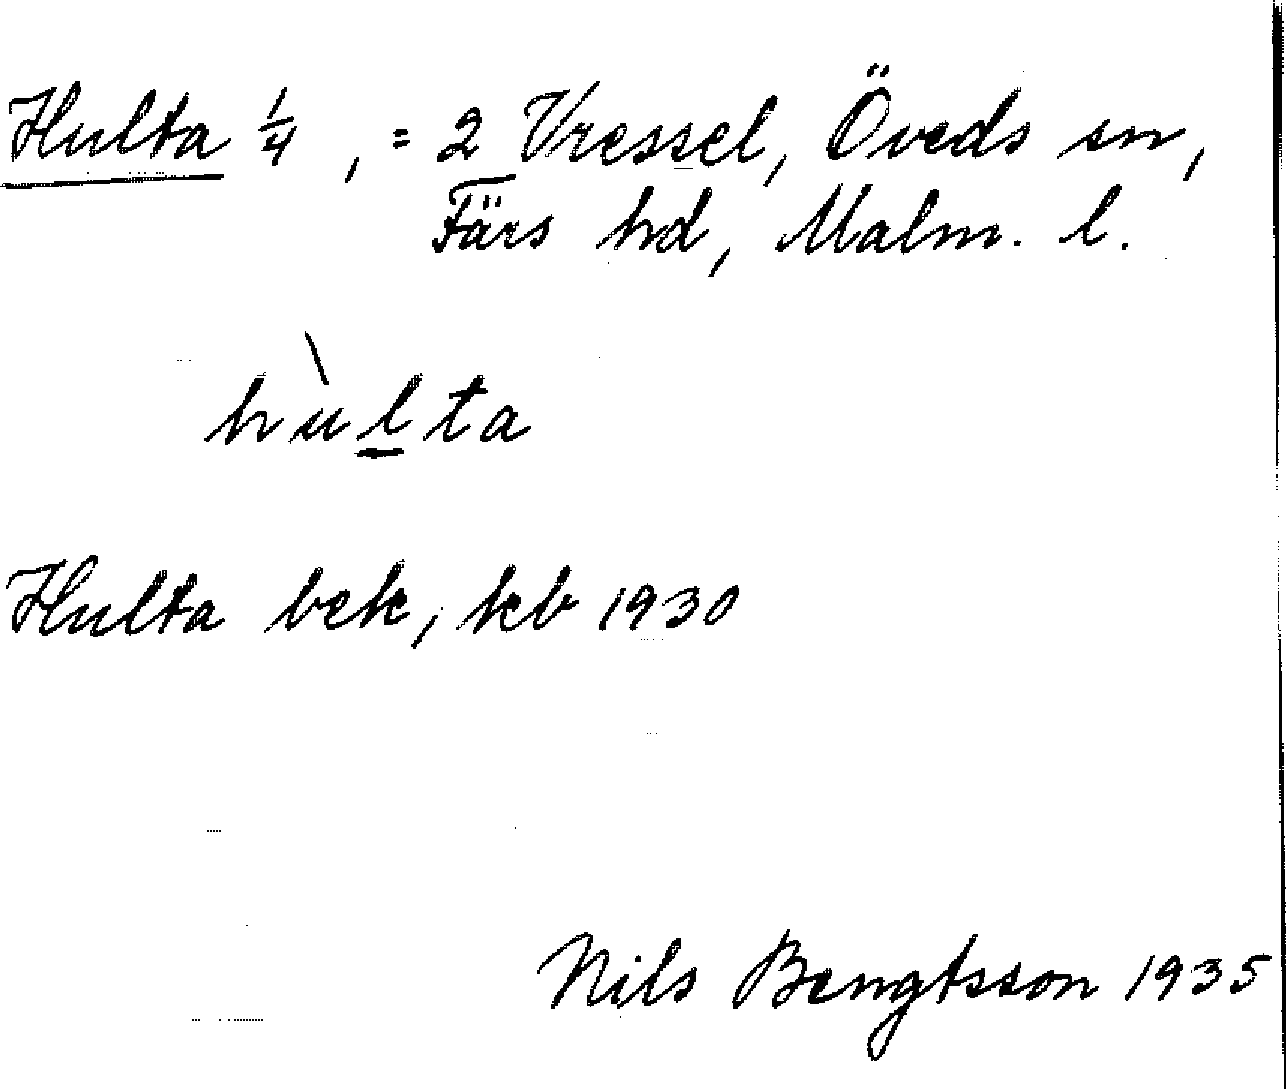 Hulta ¼, = 2 Vressel, Öveds sn,
Färs hd, Malm. l.
hùlta
Hulta bek, kb 1930
Nils Bengtsson 1935